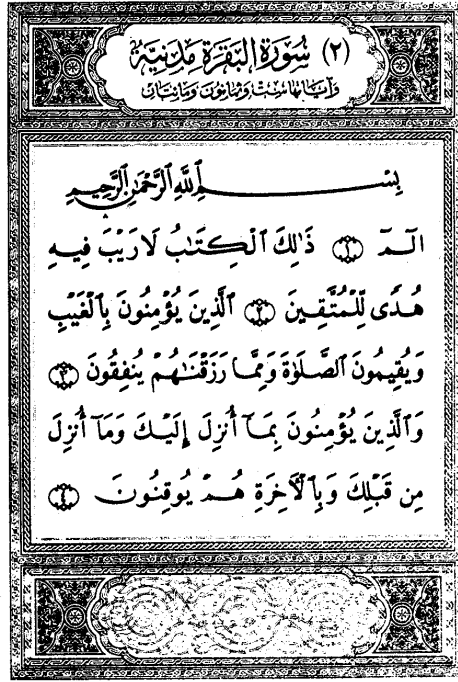 (٢) سُورَةُ البَقَرَةِ مَدَنِيَّة
وَآيَاتُهَا سِتٌّ وَثَمَانُونَ وَمَائتَانِ
بِسْمِ ٱللَّهِ ٱلرَّحْمَٰنِ ٱلرَّحِيمِ
الٓمٓ ۝١ ذَٰلِكَ ٱلْكِتَٰبُ لَا رَيْبَ فِيهِ
هُدًى لِّلْمُتَّقِينَ ۝٢ ٱلَّذِينَ يُؤْمِنُونَ بِٱلْغَيْبِ
وَيُقِيمُونَ ٱلصَّلَوٰةَ وَمِمَّا رَزَقْنَٰهُمْ يُنفِقُونَ ۝٣
وَٱلَّذِينَ يُؤْمِنُونَ بِمَآ أُنزِلَ إِلَيْكَ وَمَآ أُنزِلَ
مِن قَبْلِكَ وَبِٱلْأَخِرَةِ هُمْ يُوقِنُونَ ۝٤